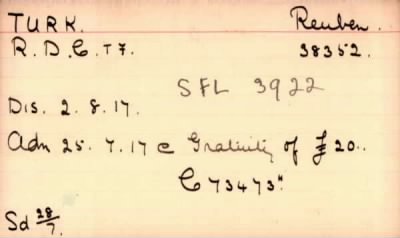 TURK. Reuben.
R. D. C. T F. 38352.
SFL 3922
Dis. 2. 8. 17.
Adn 25. 7. 17 @ Gratuity of £20..
C 73473"
Sd 28/7.